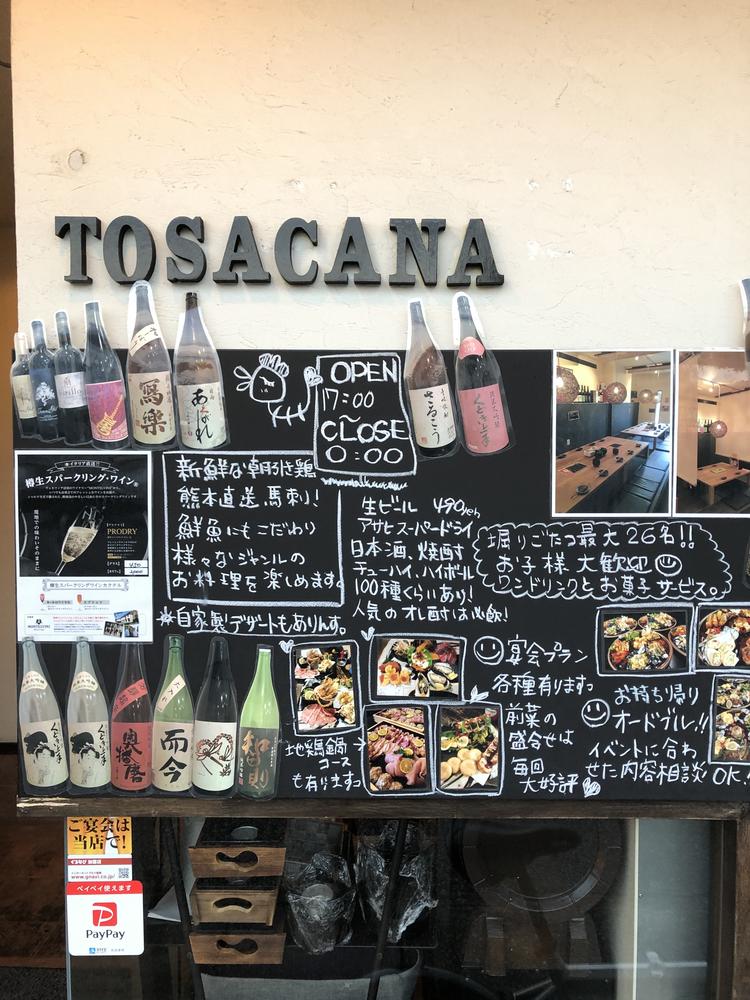 TOSACANA
OPEN
17:00
~
CLOSE
0:00
寫楽
あくがれ
さるこう
くどき上手
新鮮な朝引き鶏
熊本直送馬刺!
鮮魚にもこだわり
様々なジャンルの
お料理を楽しめます。
※自家製デザートもありんす。
生ビール 490yen
アサヒスーパードライ
日本酒、焼酎
チューハイ、ハイボール
100種くらいあり!
人気のオレ酎は必飲!
堀りごたつ最大26名!!
お子様大歓迎
ワンドリンクとお菓子サービス。
イタリア直送!!
樽生スパークリング・ワイン
現地での味わいそのままに
PRODRY
樽生スパークリングワインカクテル
宴会プラン
各種有ります
前菜の
盛合せは
毎回
大好評
お持ち帰り
オードブル!!
イベントに合わ
せた内容相談OK!
地鶏鍋→
コース
も有ります
くどき上手
くどき上手
奥播磨
而今
智則
ご宴会は
当店で!
ぐるなび 加盟店
www.gnavi.co.jp/
ペイペイ使えます
PayPay